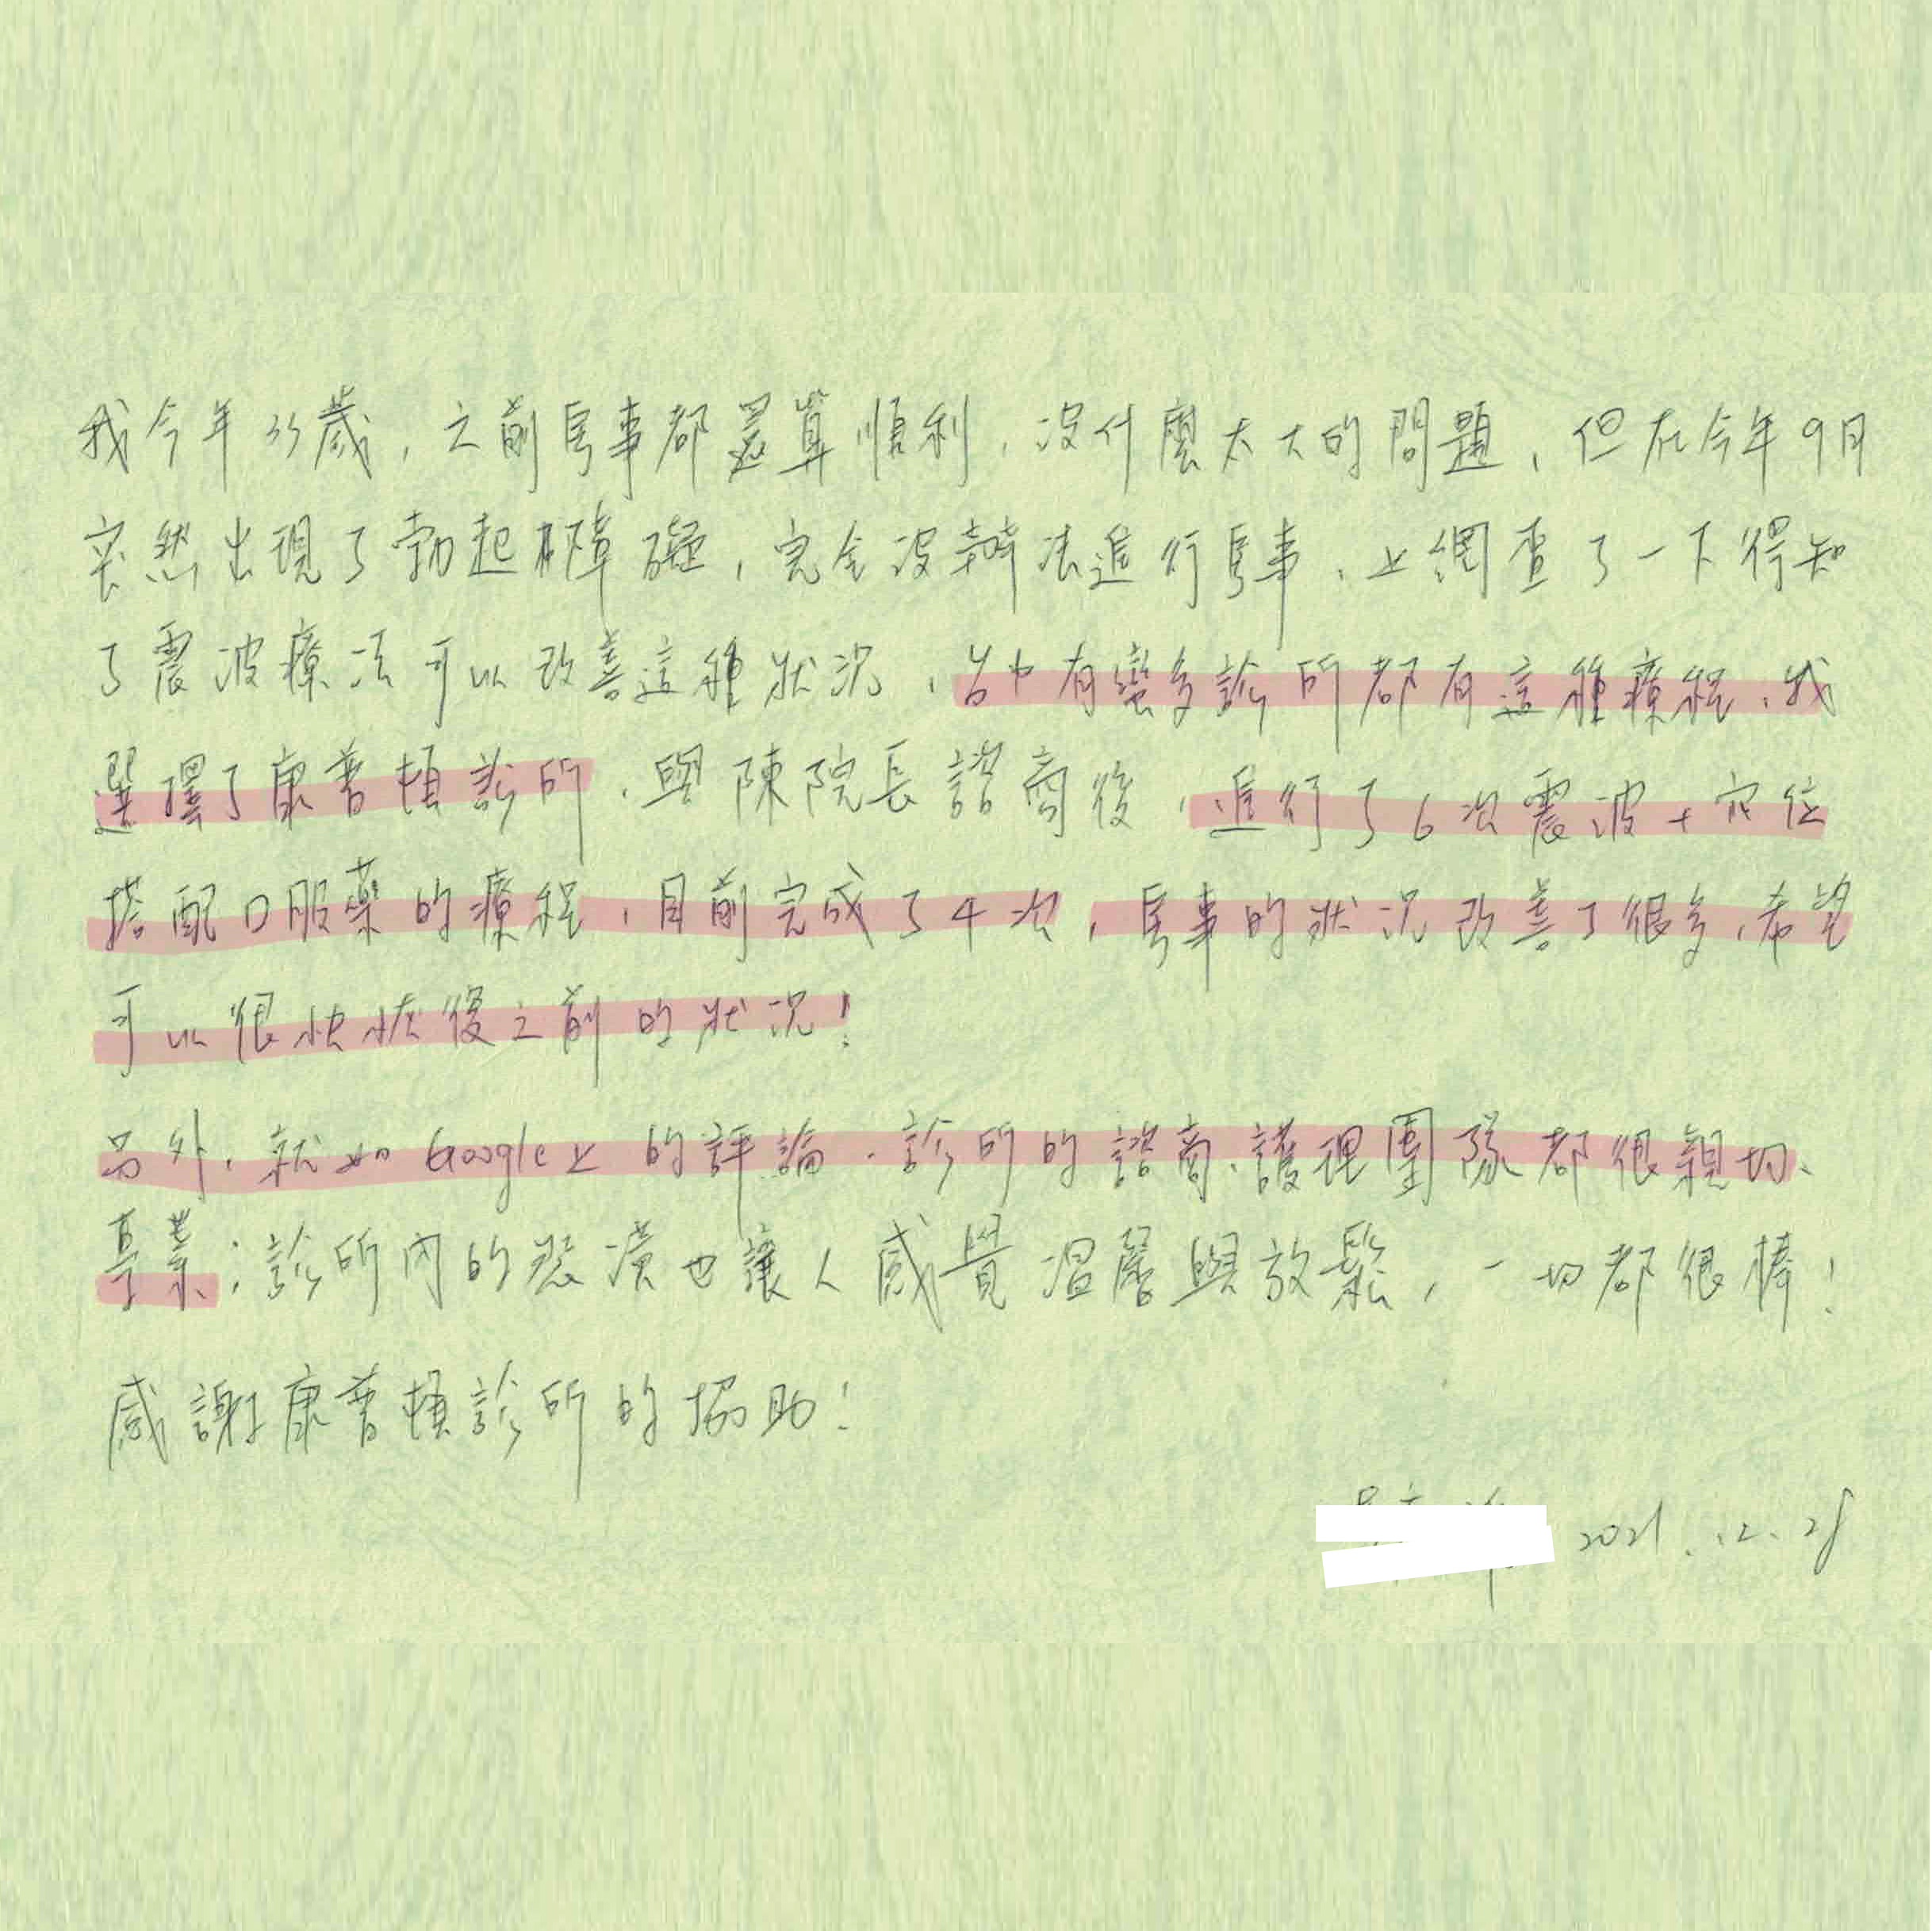 我今年35歲，之前房事都還算順利，沒什麼太大的問題，但在今年9月
突然出現了勃起障礙，完全沒辦法進行房事，上網查了一下得知
了震波療法可以改善這種狀況，台中有蠻多診所都有這種療程，我
選擇了康普頓診所，與陳院長諮商後，進行了6次震波+穴位
搭配口服藥的療程，目前完成了4次，房事的狀況改善了很多，希望
可以很快恢復之前的狀況！
另外，就如Google上的評論，診所的諮商、護理團隊都很親切、
專業；診所內的裝潢也讓人感覺溫馨與放鬆，一切都很棒！
感謝康普頓診所的協助！
2021.12.28